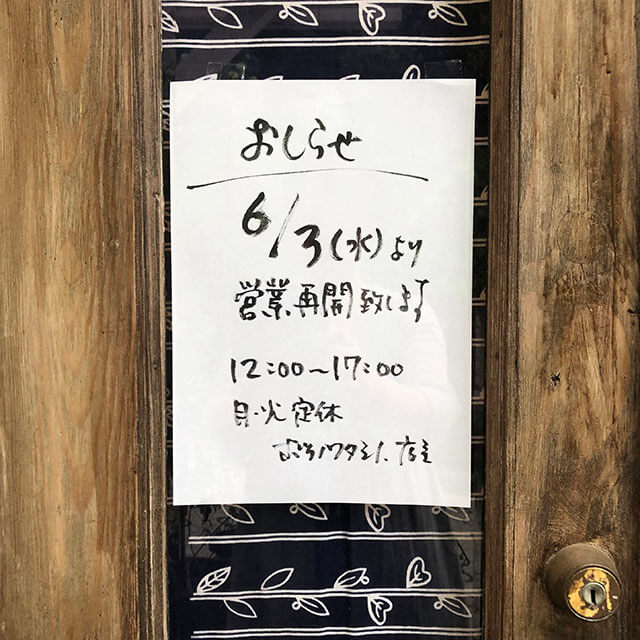 おしらせ
6/3(水)より
営業再開致します
12:00~17:00
月・火定休
店主